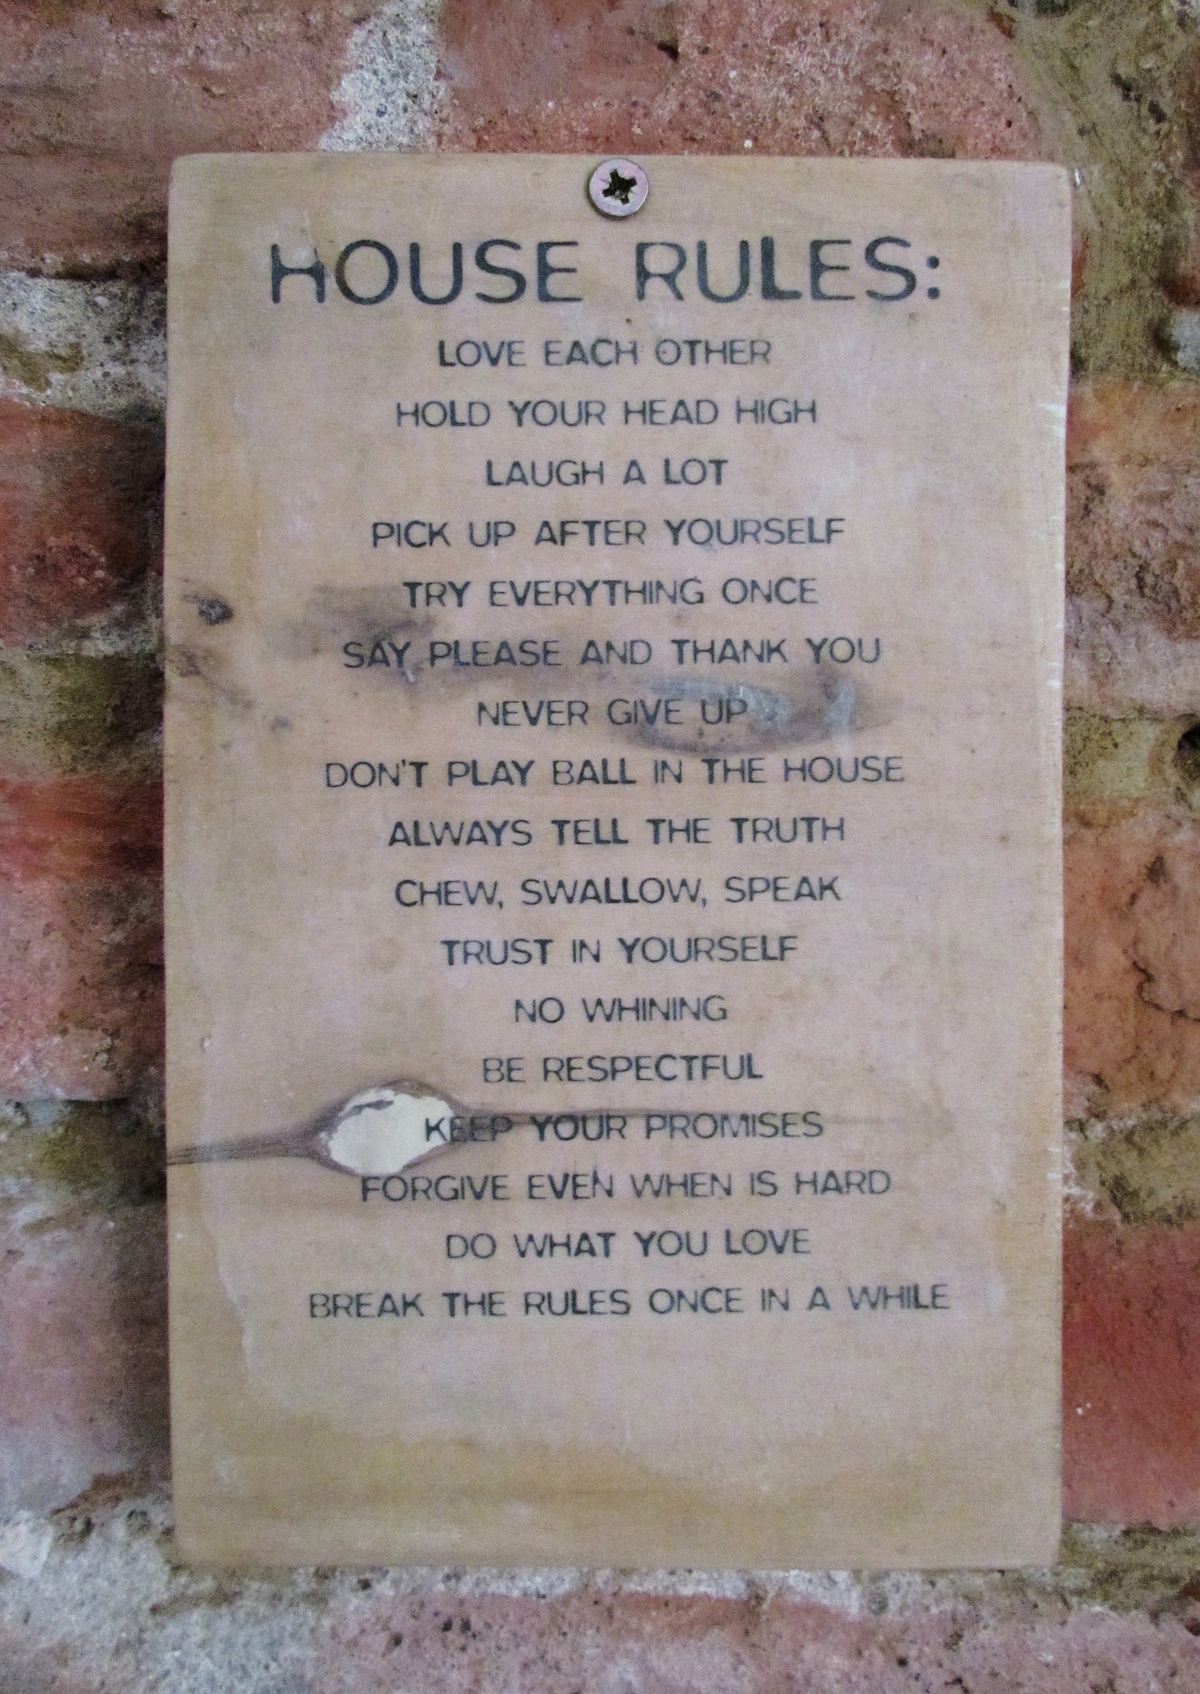 HOUSE RULES:
LOVE EACH OTHER
HOLD YOUR HEAD HIGH
LAUGH A LOT
PICK UP AFTER YOURSELF
TRY EVERYTHING ONCE
SAY PLEASE AND THANK YOU
NEVER GIVE UP
DON'T PLAY BALL IN THE HOUSE
ALWAYS TELL THE TRUTH
CHEW, SWALLOW, SPEAK
TRUST IN YOURSELF
NO WHINING
BE RESPECTFUL
KEEP YOUR PROMISES
FORGIVE EVEN WHEN IS HARD
DO WHAT YOU LOVE
BREAK THE RULES ONCE IN A WHILE